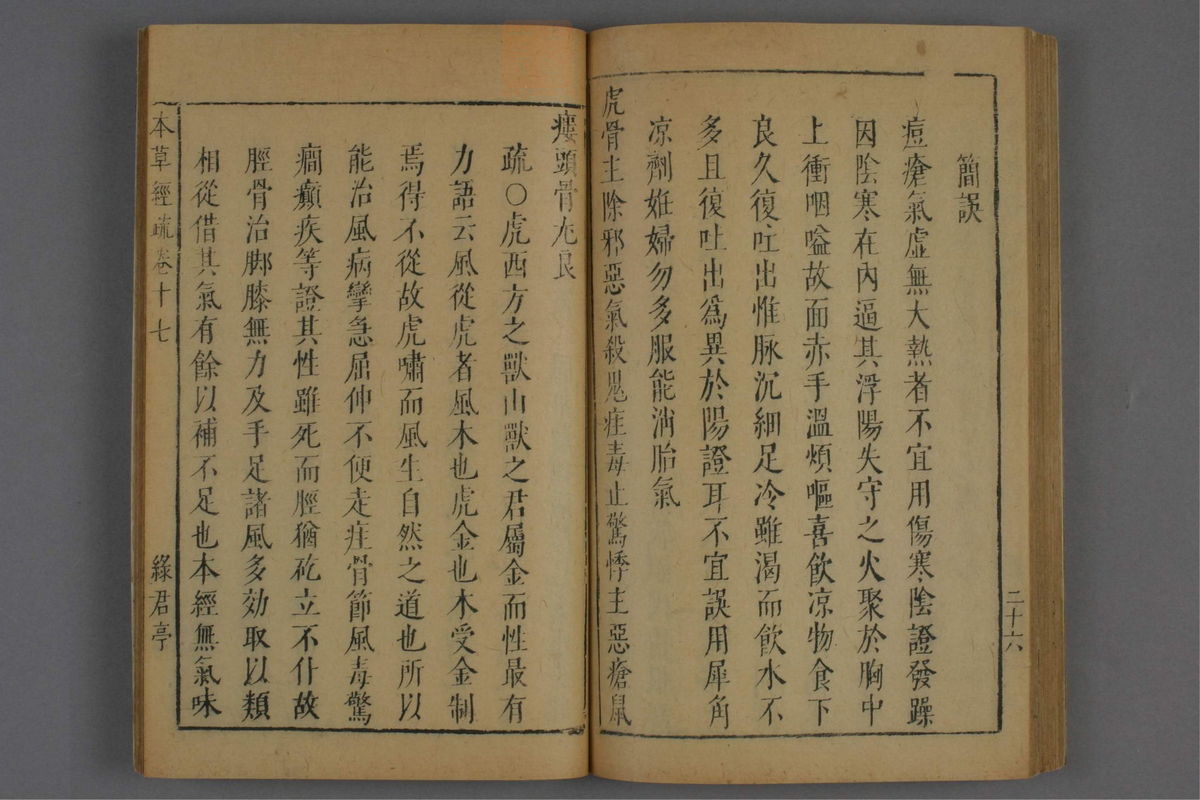 二十六
簡誤
痘瘡氣虛無大熱者不宜用傷寒陰證發躁
因陰寒在內逼其浮陽失守之火聚於胸中
上衝咽嗌故面赤手溫煩嘔喜飲凉物食下
良久復吐出惟脉沉細足冷雖渴而飲水不
多且復吐出爲異於陽證耳不宜誤用犀角
凉劑姙婦勿多服能消胎氣
虎骨主除邪惡氣殺鬼疰毒止驚悸主惡瘡鼠
瘻頭骨尤良
疏〇虎西方之獸山獸之君屬金而性最有
力語云風從虎者風木也虎金也木受金制
焉得不從故虎嘯而風生自然之道也所以
能治風病攣急屈伸不便走疰骨節風毒驚
癇癲疾等證其性雖死而脛猶矻立不仆故
脛骨治脚膝無力及手足諸風多効取以類
相從借其氣有餘以補不足也本經無氣味
本草經疏卷十七
綠君亭